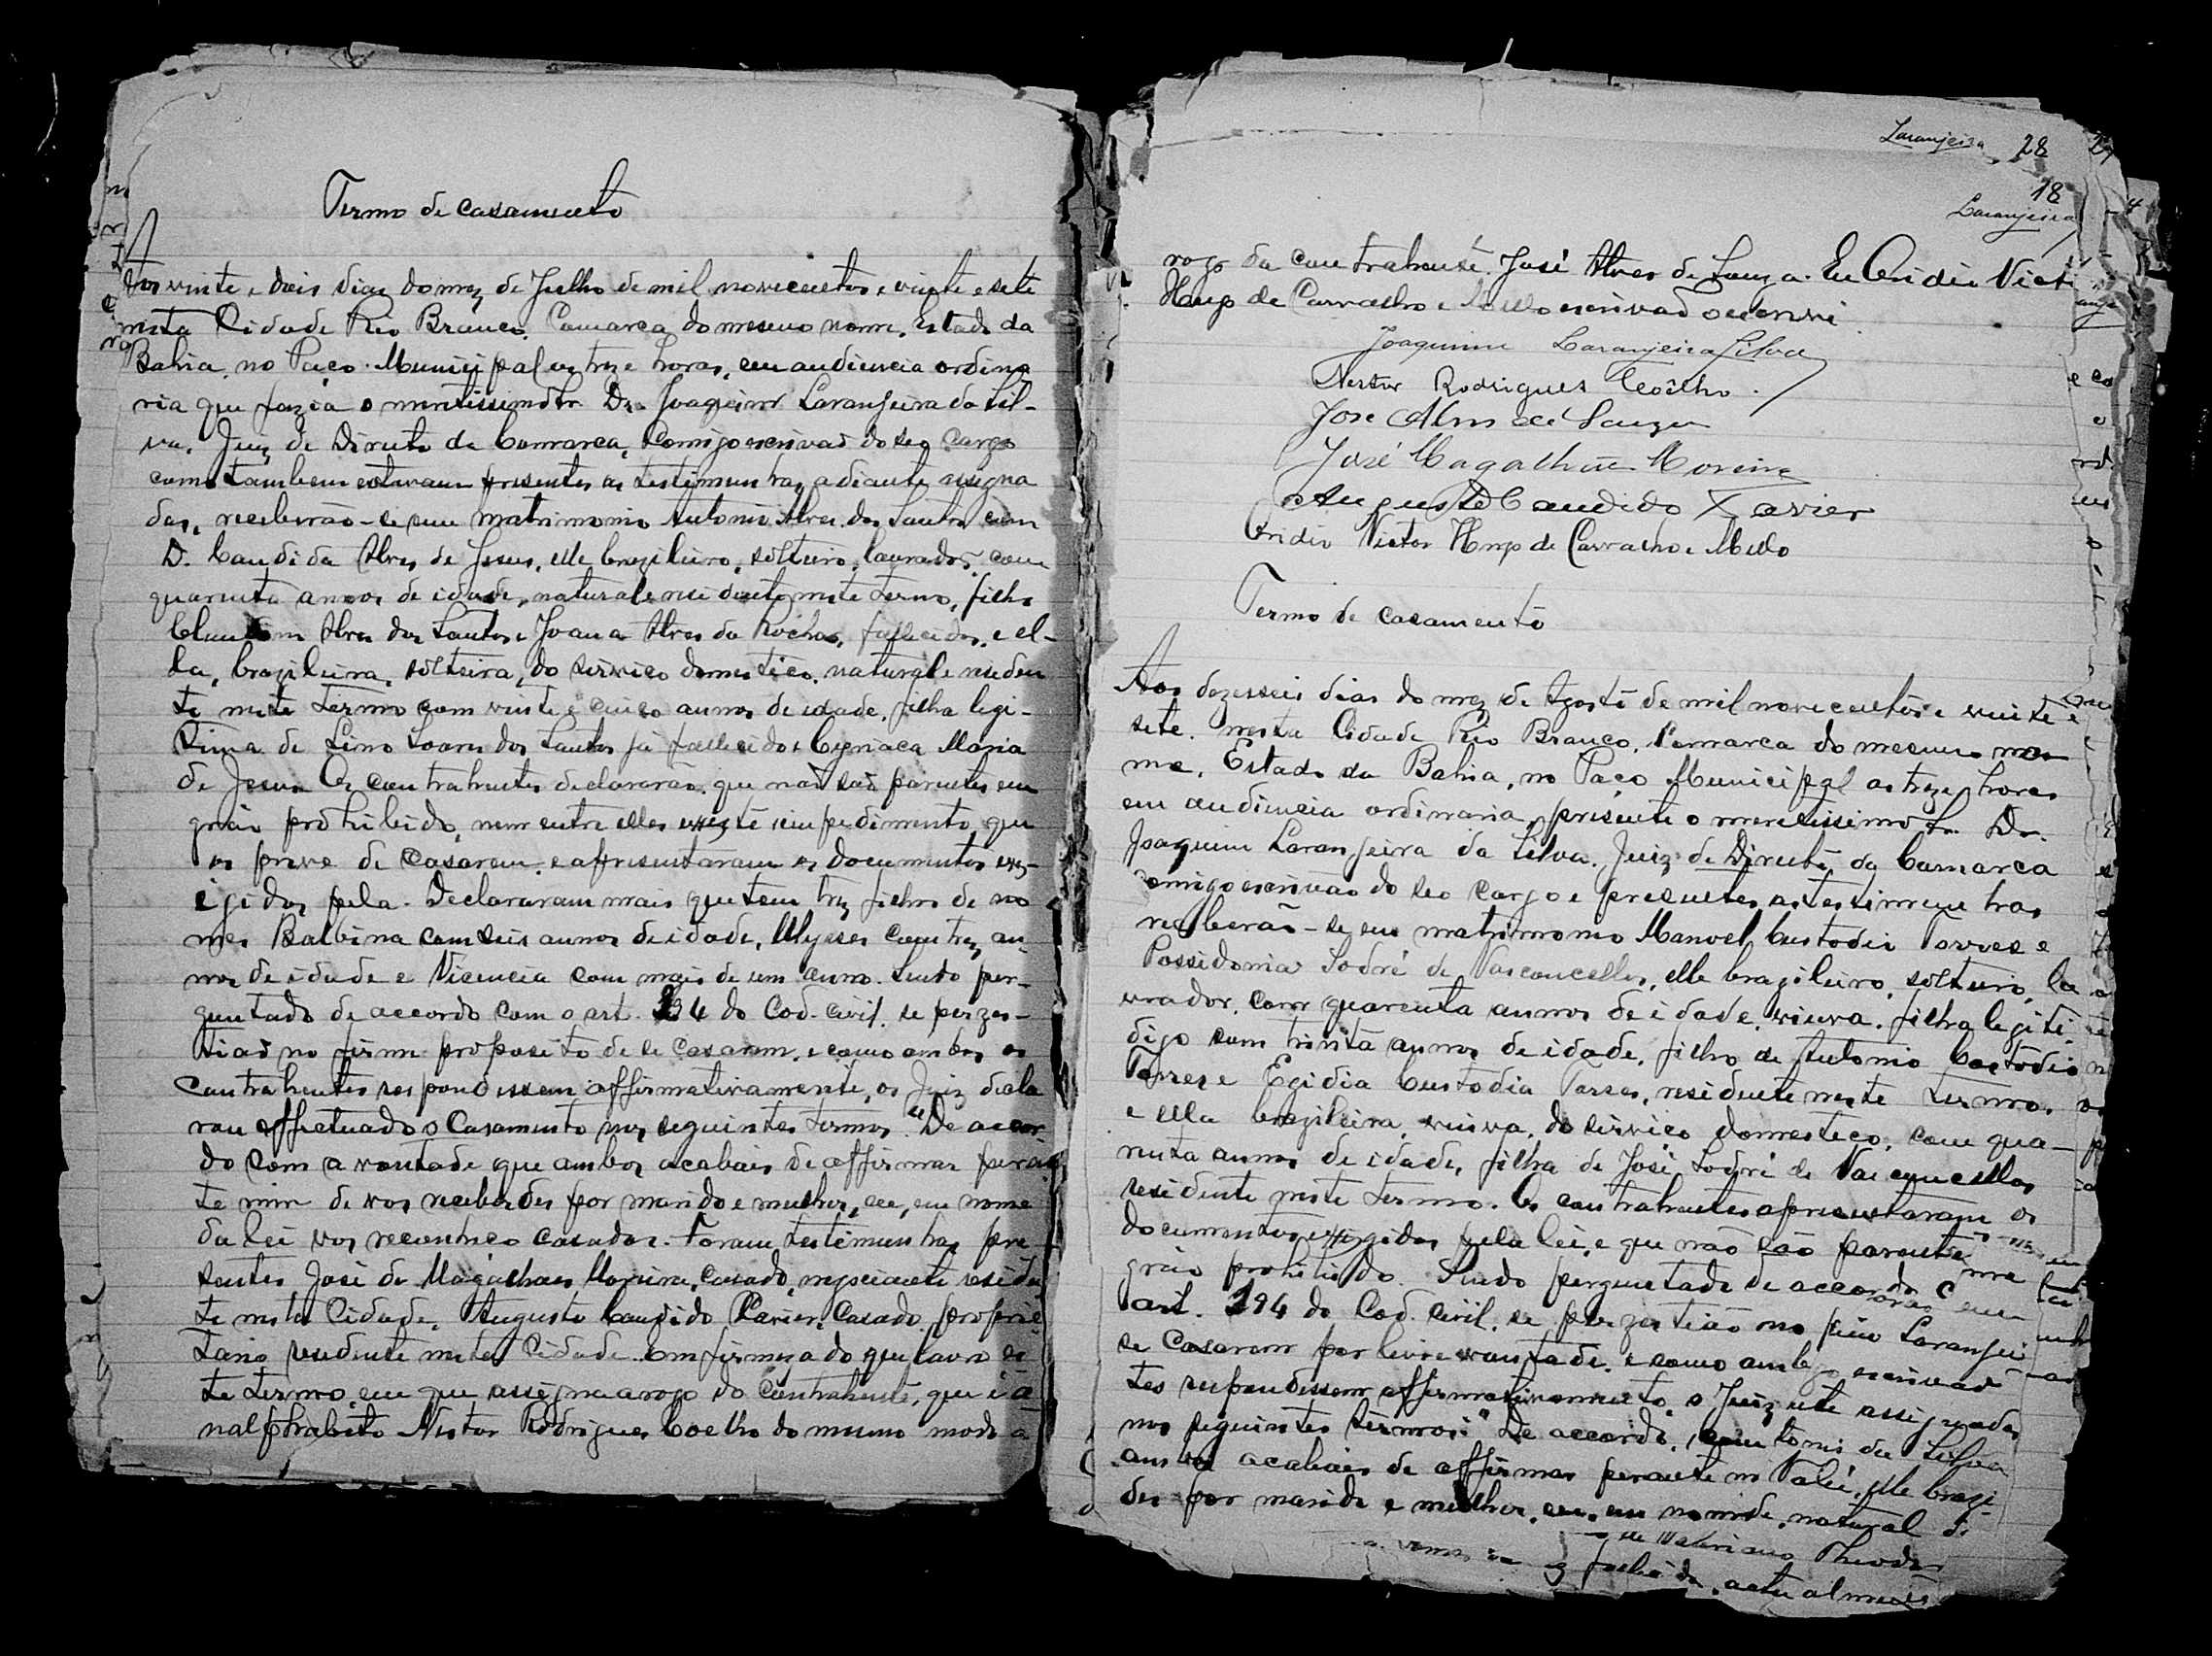 Termo de casamento
Aos vinte e dois dias do mez de Julho de mil novecentos e vinte e sete
nesta Cidade Rio Branco, Comarca do mesmo nome, Estado da
Bahia, no Paço Municipal as treze horas, em audiencia ordina
ria que fazia o meritissimo Sr. Dr. Joaquim Laranjeira da Sil-
va, Juiz de Direito da Comarca, comigo escrivão do seo cargo
como tambem estavam presentes as testimunhas adiante assigna
das, receberão-se em matrimonio Antonio Alves dos Santos com
D. Candida Alves de Jesus, elle brazileiro, solteiro, lavrador, com
quarenta annos de idade, natural e residente neste termo, filho
Alves dos Santos e Joana Alves da Rocha, fallecidos, e el-
la, brazileira, solteira, do serviço domestico, natural e residen
te neste termo com vinte e cinco annos de idade, filha legi-
tima de Lino Soares dos Santos já fallecido e Cyriaca Maria
de Jesus. Os contrahentes declararão que não são parentes em
gráo prohibido, nem entre elles existe impedimento que
os prive de casarem, e apresentaram os documentos ex-
igidos pela. Declararam mais que tem trez filhos de no
mes Balbina com seis annos de idade, Ulysses com trez an
nos de idade e Vicencia com mais de um anno. Sendo per-
guntado de accordo com o art. 194 do Cod. Civil, se persis-
tião no firme proposito de se casarem, e como ambos os
contrahentes respondessem affirmativamente, o Juiz decla
rou effectuado o Casamento nos seguintes termos: "De accor-
do com a vontade que ambos acabais de affirmar peran
te mim de vos receberdes por marido e mulher, eu, em nome
da lei vos reconheço casados. Foram testimunhas pre
sentes José de Magalhaes Moreira, casado, negociante residen
te nesta Cidade, Augusto Candido Xavier, casado, proprie
tario residente nesta Cidade. Em firmeza do que lavro es
te termo em que assigna a rogo do Contrahente, que é a
nalphabeto Nestor Rodrigues Coelho do mesmo modo a
Laranjeira 28
18
Laranjeira
rogo da contrahente José Alves de Souza. Eu Ovidio Victor
Hugo de Carvalho e Mello escrivão o escrevi
Joaquim Laranjeira Silva
Nestor Rodrigues Coêlho.
José Alves de Souza
José Magalhães Moreira
Augusto Candido Xavier
Ovidio Victor Hugo de Carvalho e Mello
Termo de casamento
Aos dezesseis dias do mez de Agosto de mil novecentos e vinte e
sete, nesta Cidade Rio Branco, Comarca do mesmo no
me, Estado da Bahia, no Paço Municipal as treze horas
em audiencia ordinaria, presente o meretissimo Sr. Dr.
Joaquim Laranjeira da Silva, Juiz de Direito da Comarca
comigo escrivão do seo cargo e presentes as testimunhas
receberão-se em matrimonio Manoel Custodio Torres e
Possidonia Sodré de Vasconcellos, elle brazileiro, solteiro, la
vrador, com quarenta annos de idade, viuva, filha legiti,
digo com trinta annos de idade, filho de Antonio Custodio
Torres e Egidia Custodia Torres, residente neste termo,
e ella brazileira, viuva, do serviço domestico, com qua-
renta annos de idade, filha de José Sodré de Vasconcellos
residente neste termo. Os contrahentes apresentaram os
documentos exigidos pela lei, e que não são parentes
gráo prohibido. Sendo perguntado de accordo
art. 194 do Cod. Civil, se persistião no Laranjei
se casarem por livre vontade, e como amb escrivão
tes respondessem affirmativamente, o Juiz assignadas
nos seguintes termos: "De accordo, com da Silva
ambos acabais de affirmar perante m elle brazi
des por marido e mulher, eu, em nom natural de
de Valeriano Theodo
fallecida, actualmente